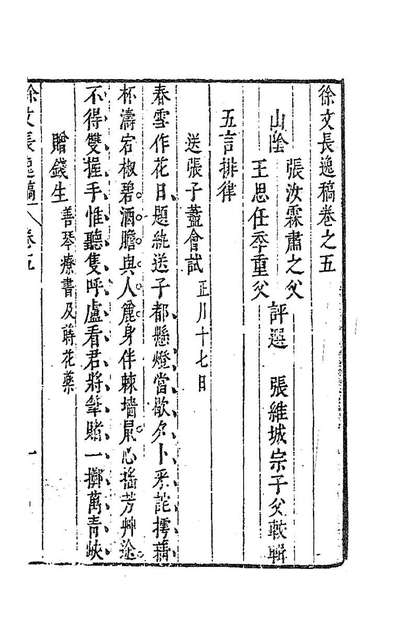 徐文長逸稿卷之五
山陰
張汝霖肅之父
王思任季重父
評選
張維城宗子父較輯
五言排律
送張子藎會試 正月十七日
春雪作花日題絖送子都懸燈當歇夕卜采詫摴蒱
杯濤宕椒碧酒膽與人麁身伴棘墻心搖芳艸途
不得雙握手惟聽隻呼盧看君將筆賭一擲萬青蚨
贈錢生 善琴療書及蒔花藥
徐文長逸稿 卷五 一